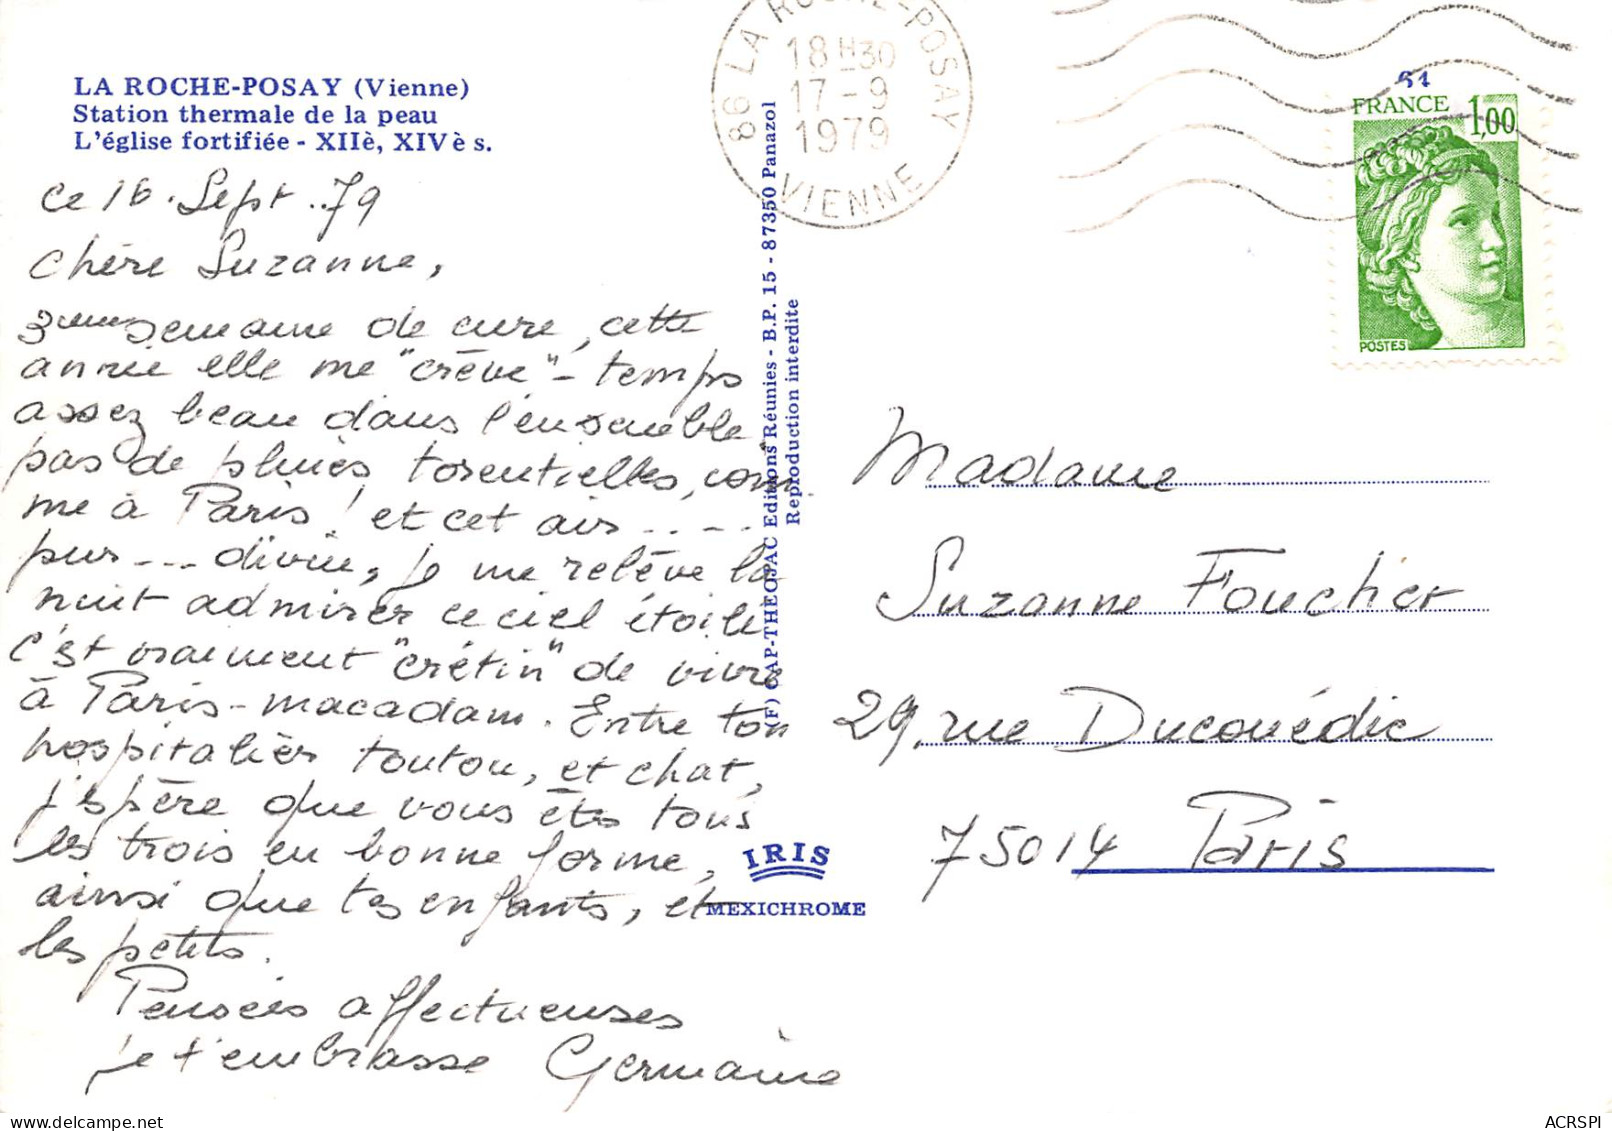 LA ROCHE-POSAY (Vienne)
Station thermale de la peau
L'église fortifiée - XIIè, XIVè s.
ce 16. Sept. 79
Chère Suzanne,
3ème semaine de cure, cette
année elle me "crève" - temps
assez beau dans l'ensemble
pas de pluies torentielles, com
me à Paris! et cet air . . - -
pur --- divin, je me relève la
nuit admirer ce ciel étoilé
c'est vraiment "crétin" de vivre
à Paris-macadam. Entre ton
hospitalier toutou, et chat,
j'espère que vous êtes tous
les trois en bonne forme,
ainsi que tes enfants, et
les petits.
Pensées affectueuses
je t'embrasse Germaine
(F) CAP-THEOJAC Editions Réunies - B.P. 15 - 87350 Panazol
Reproduction interdite
IRIS
MEXICHROME
86 LA ROCHE-POSAY
18H30
17-9
1979
VIENNE
FRANCE
1,00
POSTES
Madame
Suzanne Foucher
29, rue Ducouédic
75014 Paris
ACRSPI